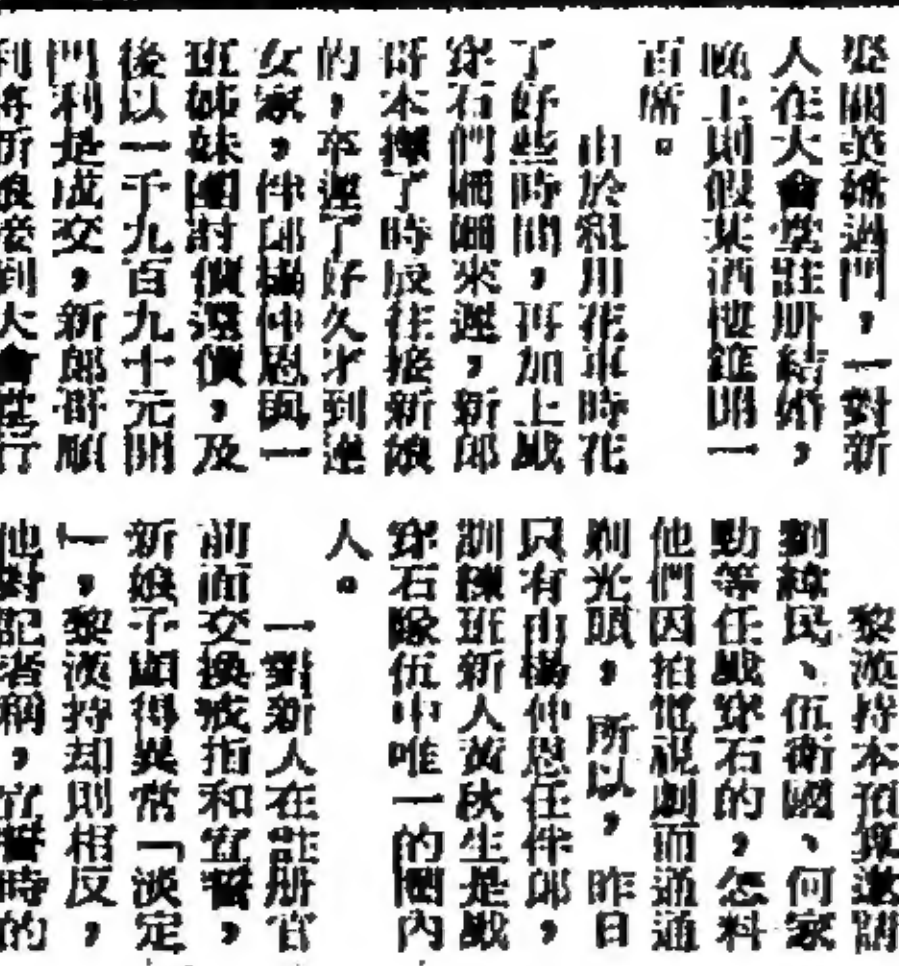 娶關美嫦過門，一對新
人在大會堂註册結婚，
晚上則假某酒樓筵開一
百席。
由於租用花車時花
了好些時間，再加上戥
穿石們姍姍來遲，新郎
哥本擬了時辰往接新娘
的，卒遲了好久才到達
女家，伴郎楊仲恩與一
班姊妹團討價還價，及
後以一千九百九十元開
門利是成交，新郎哥順
利將新娘接到大會堂行
黎漢持本預算邀請
劉緯民、伍衛國、何家
勁等任戥穿石的，怎料
他們因拍電視劇而通通
剃光頭，所以，昨日
只有由楊仲恩任伴郎，
訓練班新人黃秋生是戥
穿石隊伍中唯一的圈內
人。
一對新人在註册官
前面交換戒指和宣誓，
新娘子顯得異常「淡定
」，黎漢持却則相反，
他對記者稱，宣誓時的